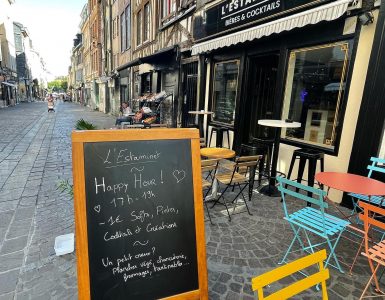 L'ESTAM
BIÈRES & COCKTAILS
L'Estaminet
~
Happy Hour !
17h - 19h
-1€ Softs, Pintes,
Cocktails et Créations
~
Un petit creux ?
Planches végé, charcuterie,
fromages, tartinables...